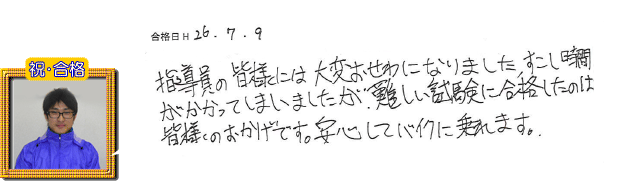 合格日 H 26.7.9
祝・合格
指導員の皆様には大変おせわになりました。すこし時間
がかかってしまいましたが、難しい試験に合格したのは
皆様のおかげです。安心してバイクに乗れます。